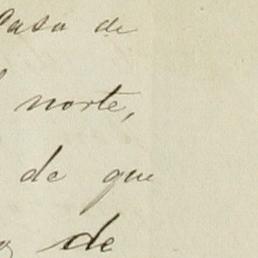 Casa de
norte,
de que
de